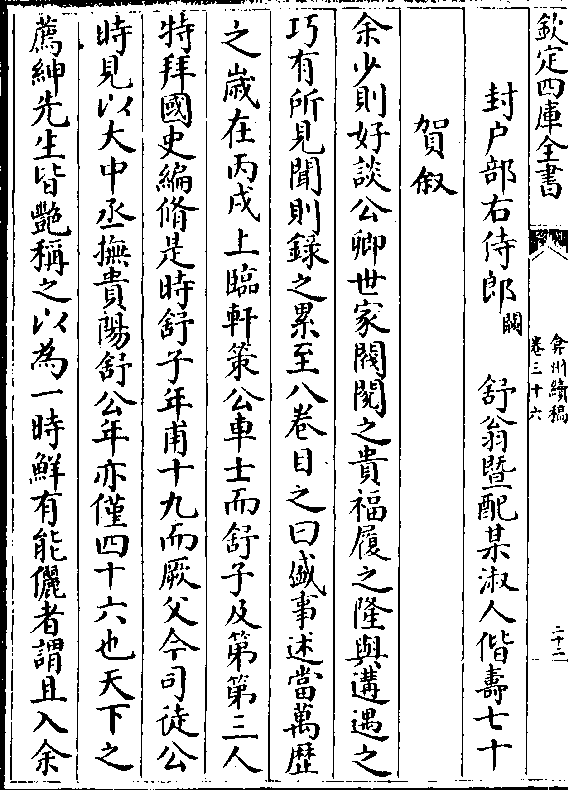 欽定四庫全書
弇州續稿
卷三十六
二十二
封户部右侍郎闕舒翁暨配某淑人偕壽七十
賀叙
余少則好談公卿世家閥閱之貴福履之隆與遘遇之
巧有所見聞則録之累至八卷目之曰盛事述當萬歴
之歳在丙戌上臨軒策公車士而舒子及第第三人
特拜國史編脩是時舒子年甫十九而厥父今司徒公
時見以大中丞撫貴陽舒公年亦僅四十六也天下之
薦紳先生皆艷稱之以為一時鮮有能儷者謂且入余